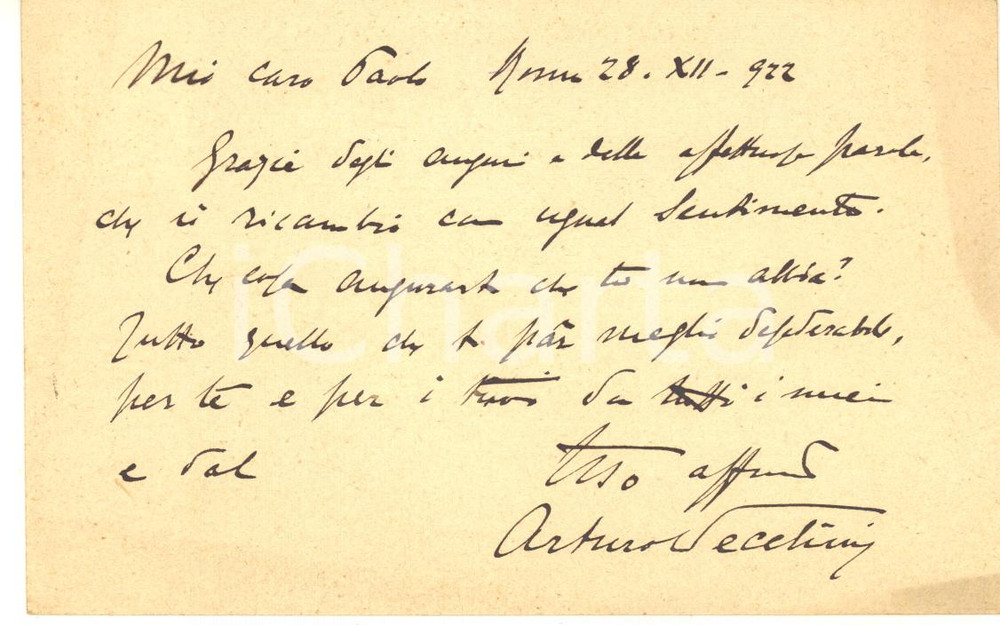 Mio caro Paolo Roma 28. XII - 922
Grazie degli auguri e delle affettuose parole,
che ti ricambio con ugual sentimento.
Che cosa augurarti che tu non abbia?
Tutto quello che ti par meglio desiderabile,
per te e per i tuoi da tutti i miei
e dal tuo affmo
Arturo Vecchini
iCharta